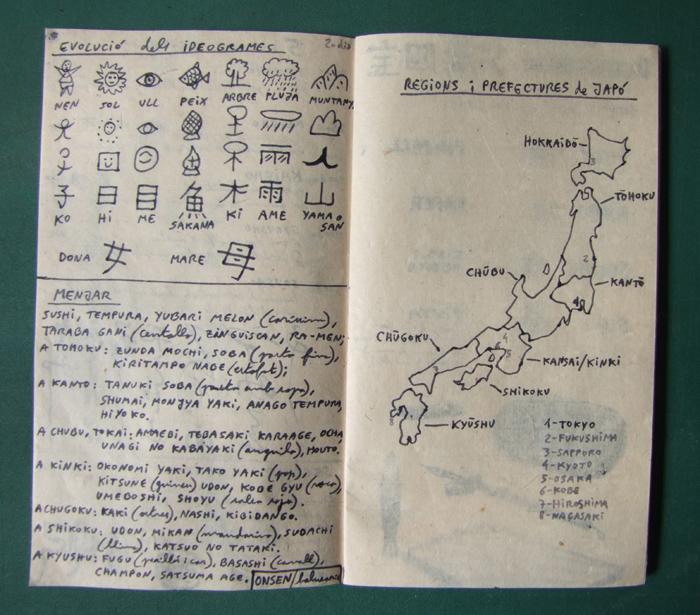 EVOLUCIÓ dels IDEOGRAMES
NEN SOL ULL PEIX ARBRE PLUJA MUNTANYA
雨
子 日 目 魚 木 雨 山
KO HI ME SAKANA KI AME YAMA o SAN
DONA 女 MARE 母
MENJAR
SUSHI, TEMPURA, YUBARI MELON (caríssim),
TARABA GANI (centollo), ZINGUISCAN, RA-MEN;
A TOHOKU: ZUNDA MOCHI, SOBA (pasta fina),
KIRITAMPO NABE (estofat);
A KANTO: TANUKI SOBA (pasta amb sopa),
SHUMAI, MONJYA YAKI, ANAGO TEMPURA,
HIYOKO.
A CHUBU, TOKAI: AMAEBI, TEBASAKI KARAAGE, OCHA,
UNAGI NO KABAYAKI (anguila), HOUTO.
A KINKI: OKONOMI YAKI, TAKO YAKI (pop),
KITSUNE (guineu) UDON, KOBE GYU (vaca),
UMEBOSHI, SHOYU (salsa soja).
A CHUGOKU: KAKI (ostres), NASHI, KIBIDANGO.
A SHIKOKU: UDON, MIKAN (mandarina), SUDACHI
(llima), KATSUO NO TATAKI.
A KYUSHU: FUGU (perillós i car), BASASHI (cavall),
CHAMPON, SATSUMA AGE. ONSEN/balneari
REGIONS i PREFECTURES de JAPÓ
HOKKAIDŌ
3
TŌHOKU
2
CHŪBU
KANTŌ
CHŪGOKU
4
KANSAI/KINKI
SHIKOKU
KYŪSHU
1-TOKYO
2-FUKUSHIMA
3-SAPPORO
4-KYOTO
5-OSAKA
6-KOBE
7-HIROSHIMA
8-NAGASAKI